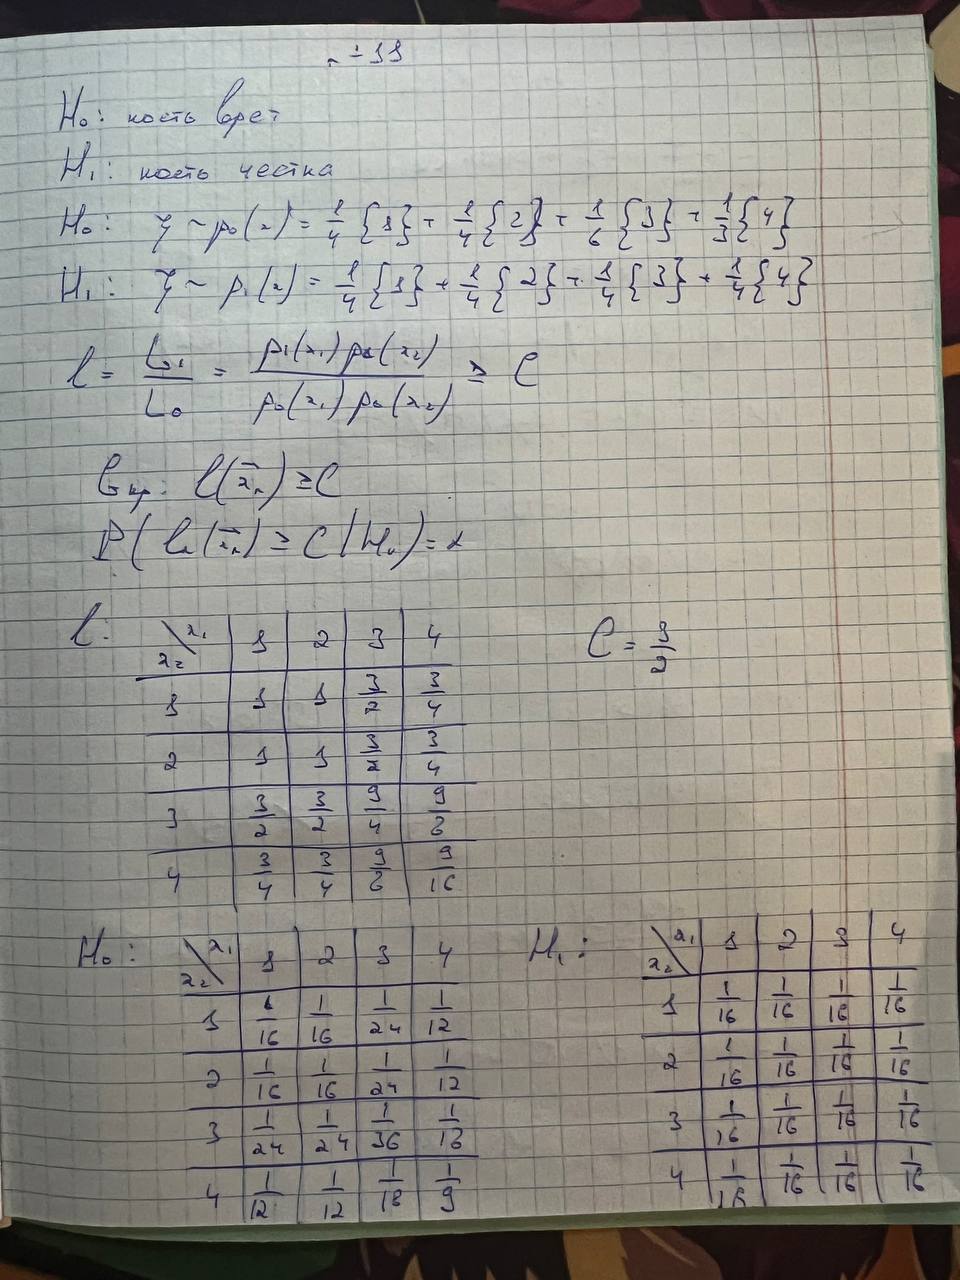 № 11
H₀: кость врет
H₁: кость честна
H₀: ξ ~ p₀(x) = 1/4 {1} + 1/4 {2} + 1/6 {3} + 1/3 {4}
H₁: ξ ~ p₁(x) = 1/4 {1} + 1/4 {2} + 1/4 {3} + 1/4 {4}
l = L₁/L₀ = p₁(x₁) p₁(x₂) / p₀(x₁) p₀(x₂) ≥ C
Gкр: l(x̄ₙ) ≥ C
P( l(x̄ₙ) ≥ C | H₀) = α
l: x₂ \ x₁ 1 2 3 4
C = 3/2
1 1 1 3/2 3/4
2 1 1 3/2 3/4
3 3/2 3/2 9/4 9/8
4 3/4 3/4 9/8 9/16
H₀: x₂ \ x₁ 1 2 3 4
1 1/16 1/16 1/24 1/12
2 1/16 1/16 1/24 1/12
3 1/24 1/24 1/36 1/18
4 1/12 1/12 1/18 1/9
H₁: x₂ \ x₁ 1 2 3 4
1 1/16 1/16 1/16 1/16
2 1/16 1/16 1/16 1/16
3 1/16 1/16 1/16 1/16
4 1/16 1/16 1/16 1/16